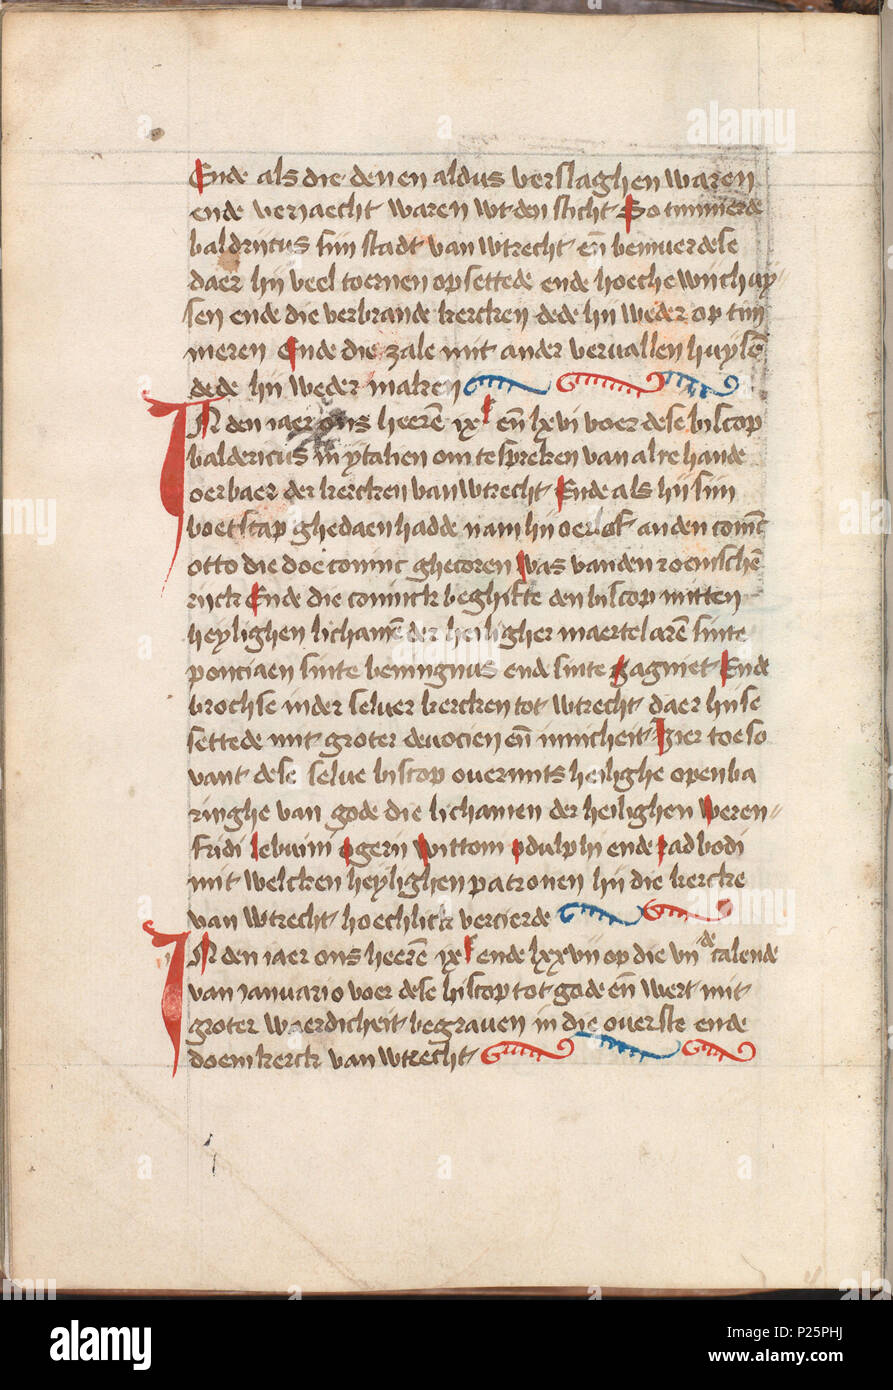 Ende als die denen aldus verslaghen waren
ende veriaecht waren wt den sticht So timmerde
baldricus sijn stadt van wtrecht en̄ bemuerdese
daer hij veel toernen op settede ende hoeche wijchuy⸗
sen ende die verbrande kercken dede hij weder op tim
meren Ende die zale mit ander vervallen huysē
dede hij weder maken
IN den iaer ons heerē ixᶜ en̄ lxvi voer dese biscop
baldericus in ytalien om te spreken van alrehande
oerbaer der kercken van wtrecht Ende als hij sijn
boetscap ghedaen hadde nam hij oerlof an den conīc
otto die doe coninc ghecoren was vanden roemschē
rijck Ende die coninck beghifte den biscop mitten
heylighen lichamē der heiligher maertelarē sinte
ponciaen sinte benningnus ende sinte agniet Ende
brochse inder selver kercken tot wtrecht daer hijse
settede mit groter devocien en̄ innicheit hier toe so
vant dese selve biscop overmits heilighe openba
ringhe van gode die lichamen der heilighen weren⸗
fridi lebuini ogerii wittom odulphi ende radbodi
mit welcken heylighen patronen hij die kercke
van wtrecht hoechlick vercierde
IN den iaer ons heerē ixᶜ ende lxxvij op die vijᵈᵉ calende
van ianuario voer dese biscop tot gode en̄ wert mit
groter waerdicheit begraven in die overste ende
doemkerck van wtrecht
alamy
Image ID: P25PHJ
www.alamy.com